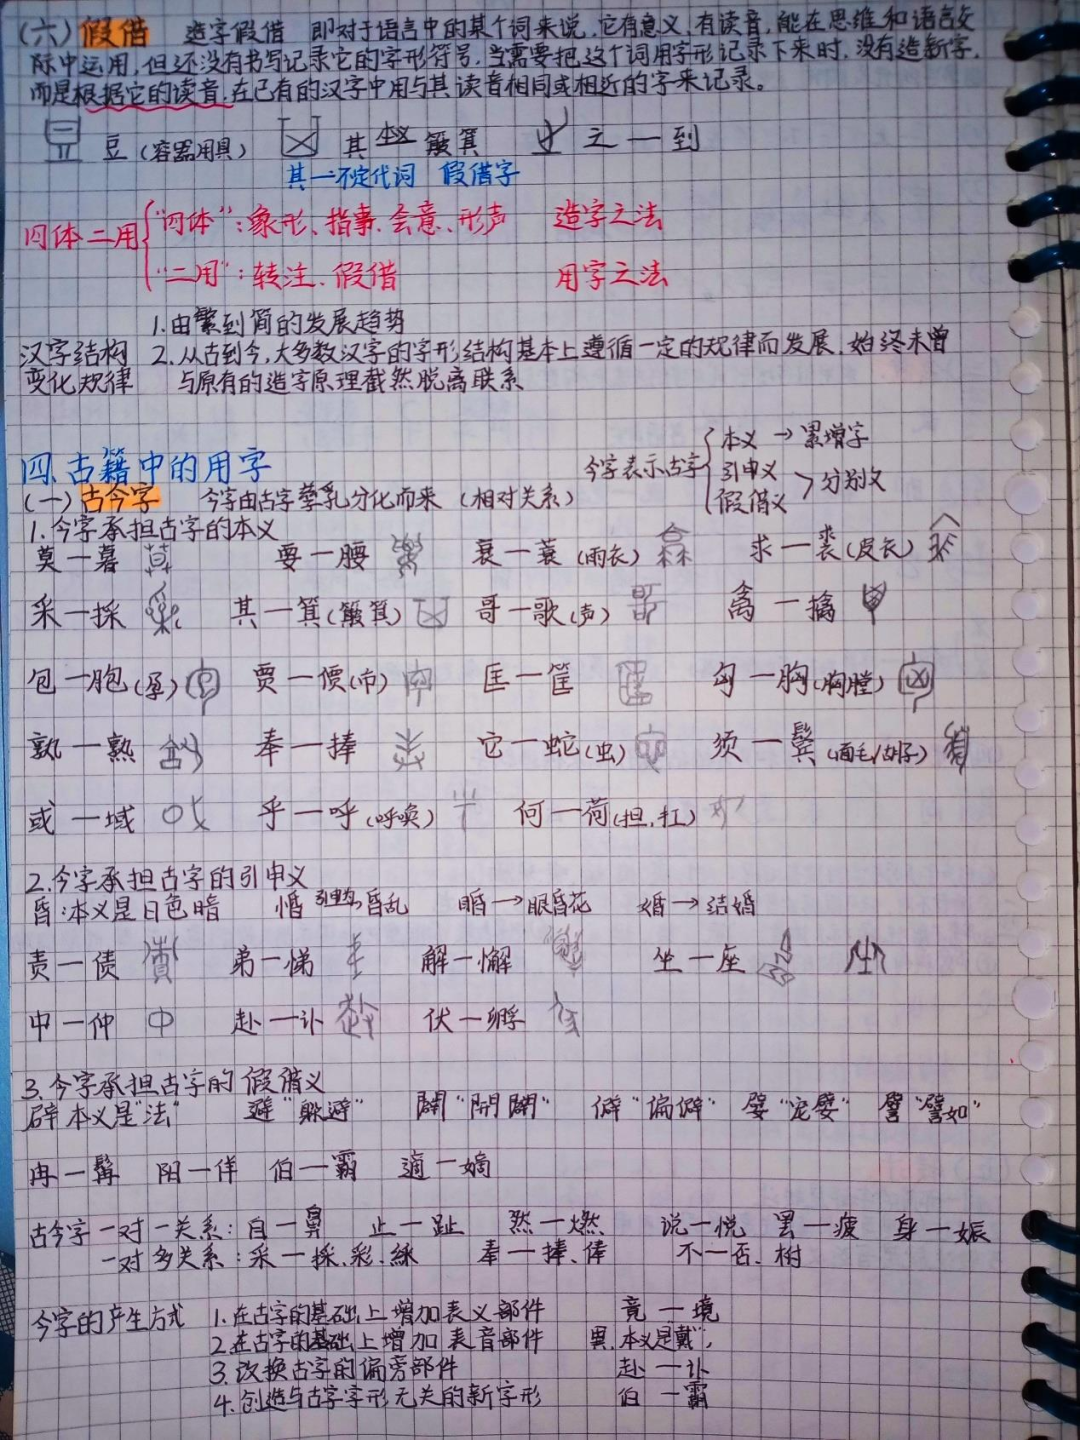 (六)假借 造字假借 即对于语言中的某个词来说,它有意义,有读音,能在思维和语言交
际中运用,但还没有书写记录它的字形符号,当需要把这个词用字形记录下来时,没有造新字,
而是根据它的读音,在已有的汉字中用与其读音相同或相近的字来记录。
豆(容器用具) 其 本义 簸箕 之一到
其一不定代词 假借字
四体二用 "四体":象形、指事、会意、形声 造字之法
"二用":转注、假借 用字之法
1.由繁到简的发展趋势
汉字结构 2.从古到今,大多数汉字的字形结构基本上遵循一定的规律而发展,始终未曾
变化规律 与原有的造字原理截然脱离联系
四、古籍中的用字
今字表示古字 本义→累增字
引申义
假借义 >分别文
(一)古今字 今字由古字孳乳分化而来(相对关系)
1.今字承担古字的本义
莫一暮 要一腰 衰一蓑(雨衣) 求一裘(皮衣)
采一採 其一箕(簸箕) 哥一歌(声) 禽一擒
包一胞(孕) 贾一價(市) 匡一筐 匈一胸(胸膛)
孰一熟 奉一捧 它一蛇(虫) 须一鬓(面毛/胡子)
或一域 乎一呼(呼唤) 何一荷(担,扛)
2.今字承担古字的引申义
昏:本义是日色暗 惛 昏乱 睧→眼昏花 婚→结婚
责一债 弟一悌 解一懈 坐一座
中一仲 赴一讣 伏一孵
3.今字承担古字的假借义
辟 本义是"法" 避"躲避" 闢"開闢" 僻"偏僻" 嬖"宠嬖" 譬"譬如"
冉一髯 阳一佯 伯一霸 適一嫡
古今字一对一关系:自一鼻 止一趾 然一燃 说一悦 罢一疲 身一娠
一对多关系:采一採、彩、綵 奉一捧、俸 不一否、柎
今字的产生方式 1.在古字的基础上增加表义部件 竟一境
2.在古字的基础上增加表音部件 異,本义是"戴",
3.改换古字的偏旁部件 赴一讣
4.创造与古字字形无关的新字形 伯一霸